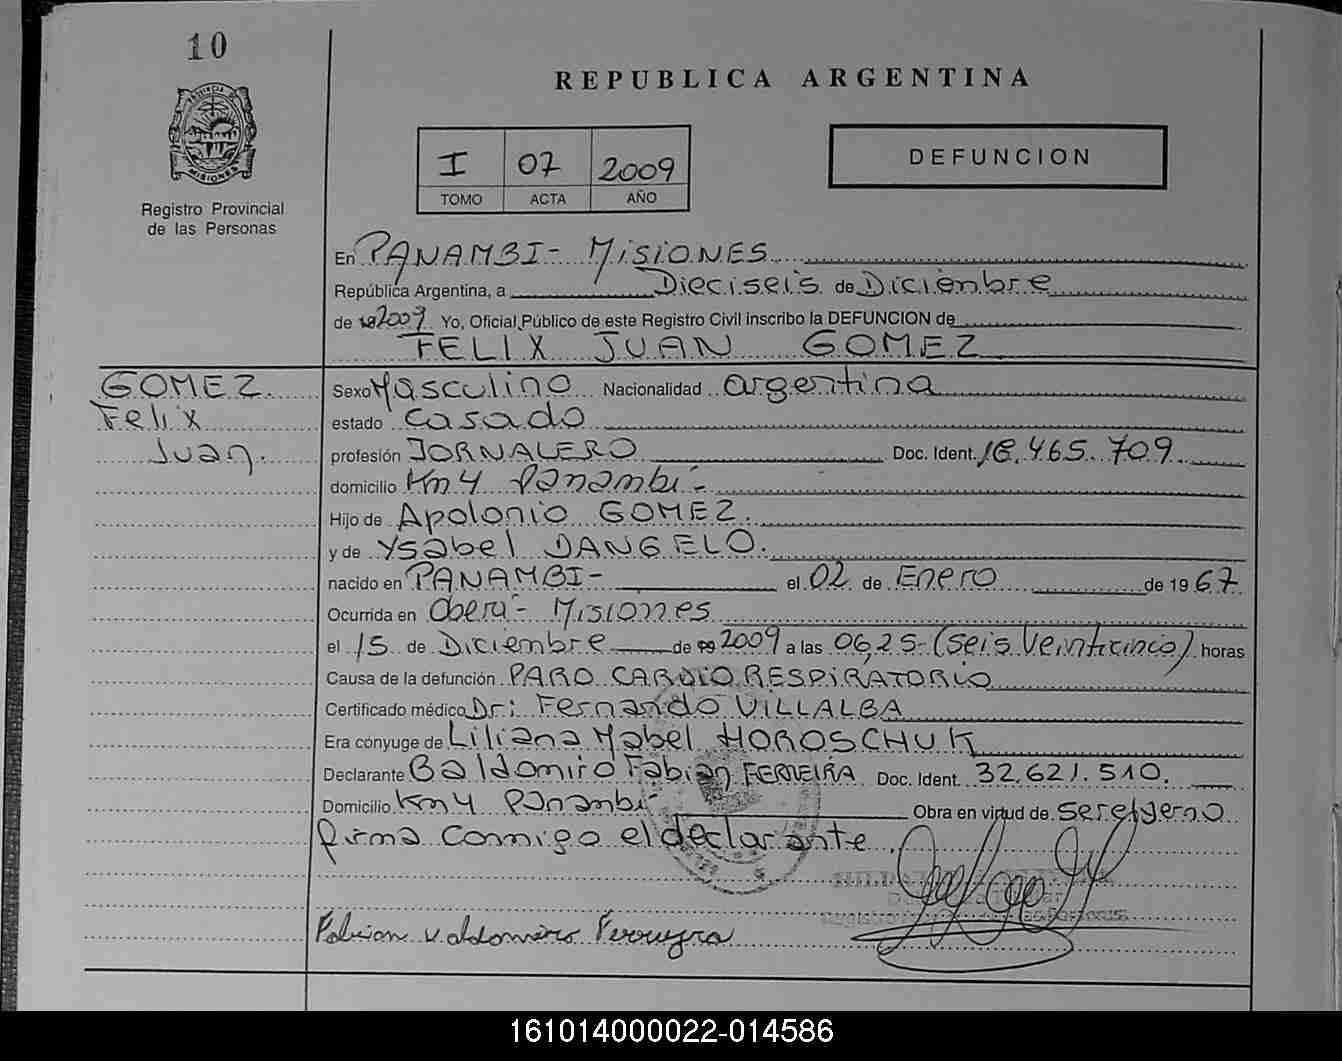 10
REPUBLICA ARGENTINA
I 07 2009
TOMO ACTA AÑO
DEFUNCION
MISIONES
Registro Provincial
de las Personas
En PANAMBI - MisiONES
República Argentina, a Dieciseis de Diciembre
de 2009 Yo, Oficial Público de este Registro Civil inscribo la DEFUNCION de
FELIX JUAN GOMEZ
GOMEZ
Felix
Juan.
Sexo Masculino Nacionalidad argentina
estado casado
profesión JORNALERO Doc. Ident. 18.465.709
domicilio Km 4 Panambi -
Hijo de Apolonio GOMEZ.
y de Ysabel DANGELO.
nacido en PANAMBI - el 02 de Enero de 1967
Ocurrida en Oberá - Misiones
el 15 de Diciembre de 2009 a las 06,25 - (seis Veinticinco) horas
Causa de la defunción PARO CARDiO RESPiRATORiO
Certificado médico Dr: Fernando VILLALBA
Era cónyuge de Liliana Mabel HOROSCHUK
Declarante Baldomiro Fabian FERREIRA Doc. Ident. 32.621.510.
Domicilio Km 4 Panambi - Obra en virtud de ser el yerno
firma conmigo el declarante.
Fabian Valdomiro Ferreyra
161014000022-014586